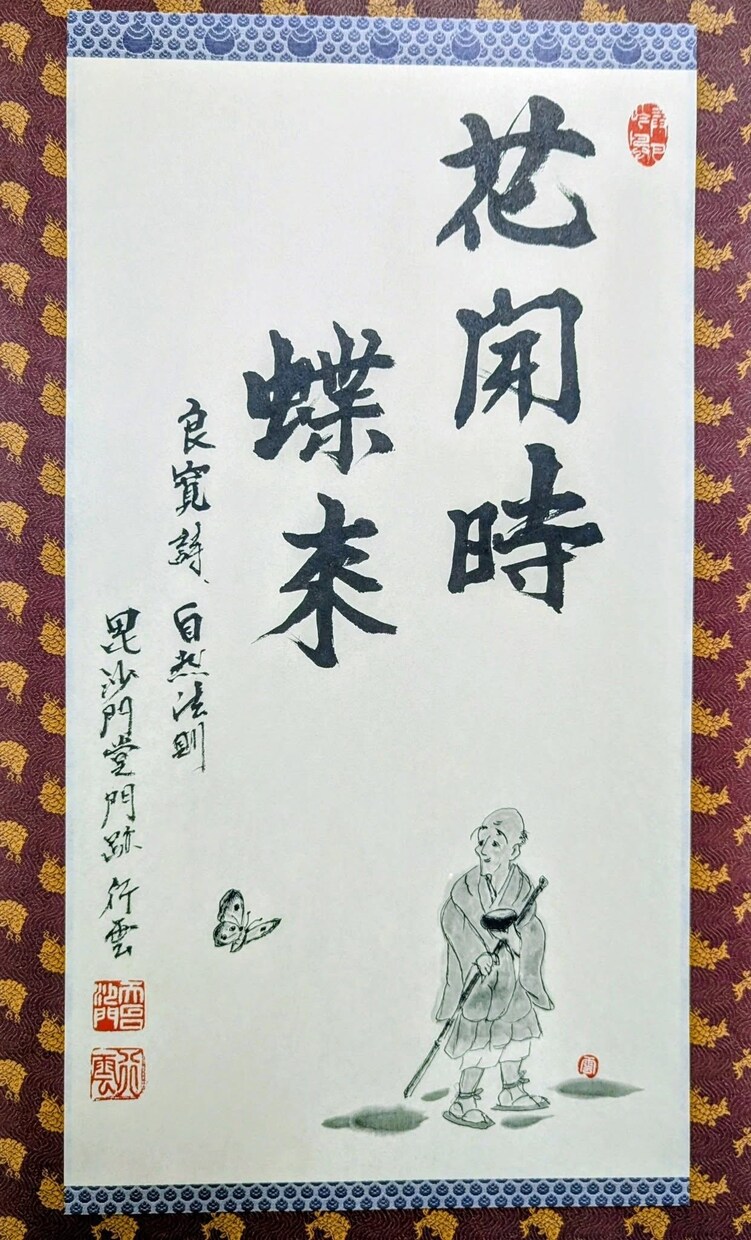 花開時
蝶来
良寛詩、自然法則
毘沙門堂門跡 行雲